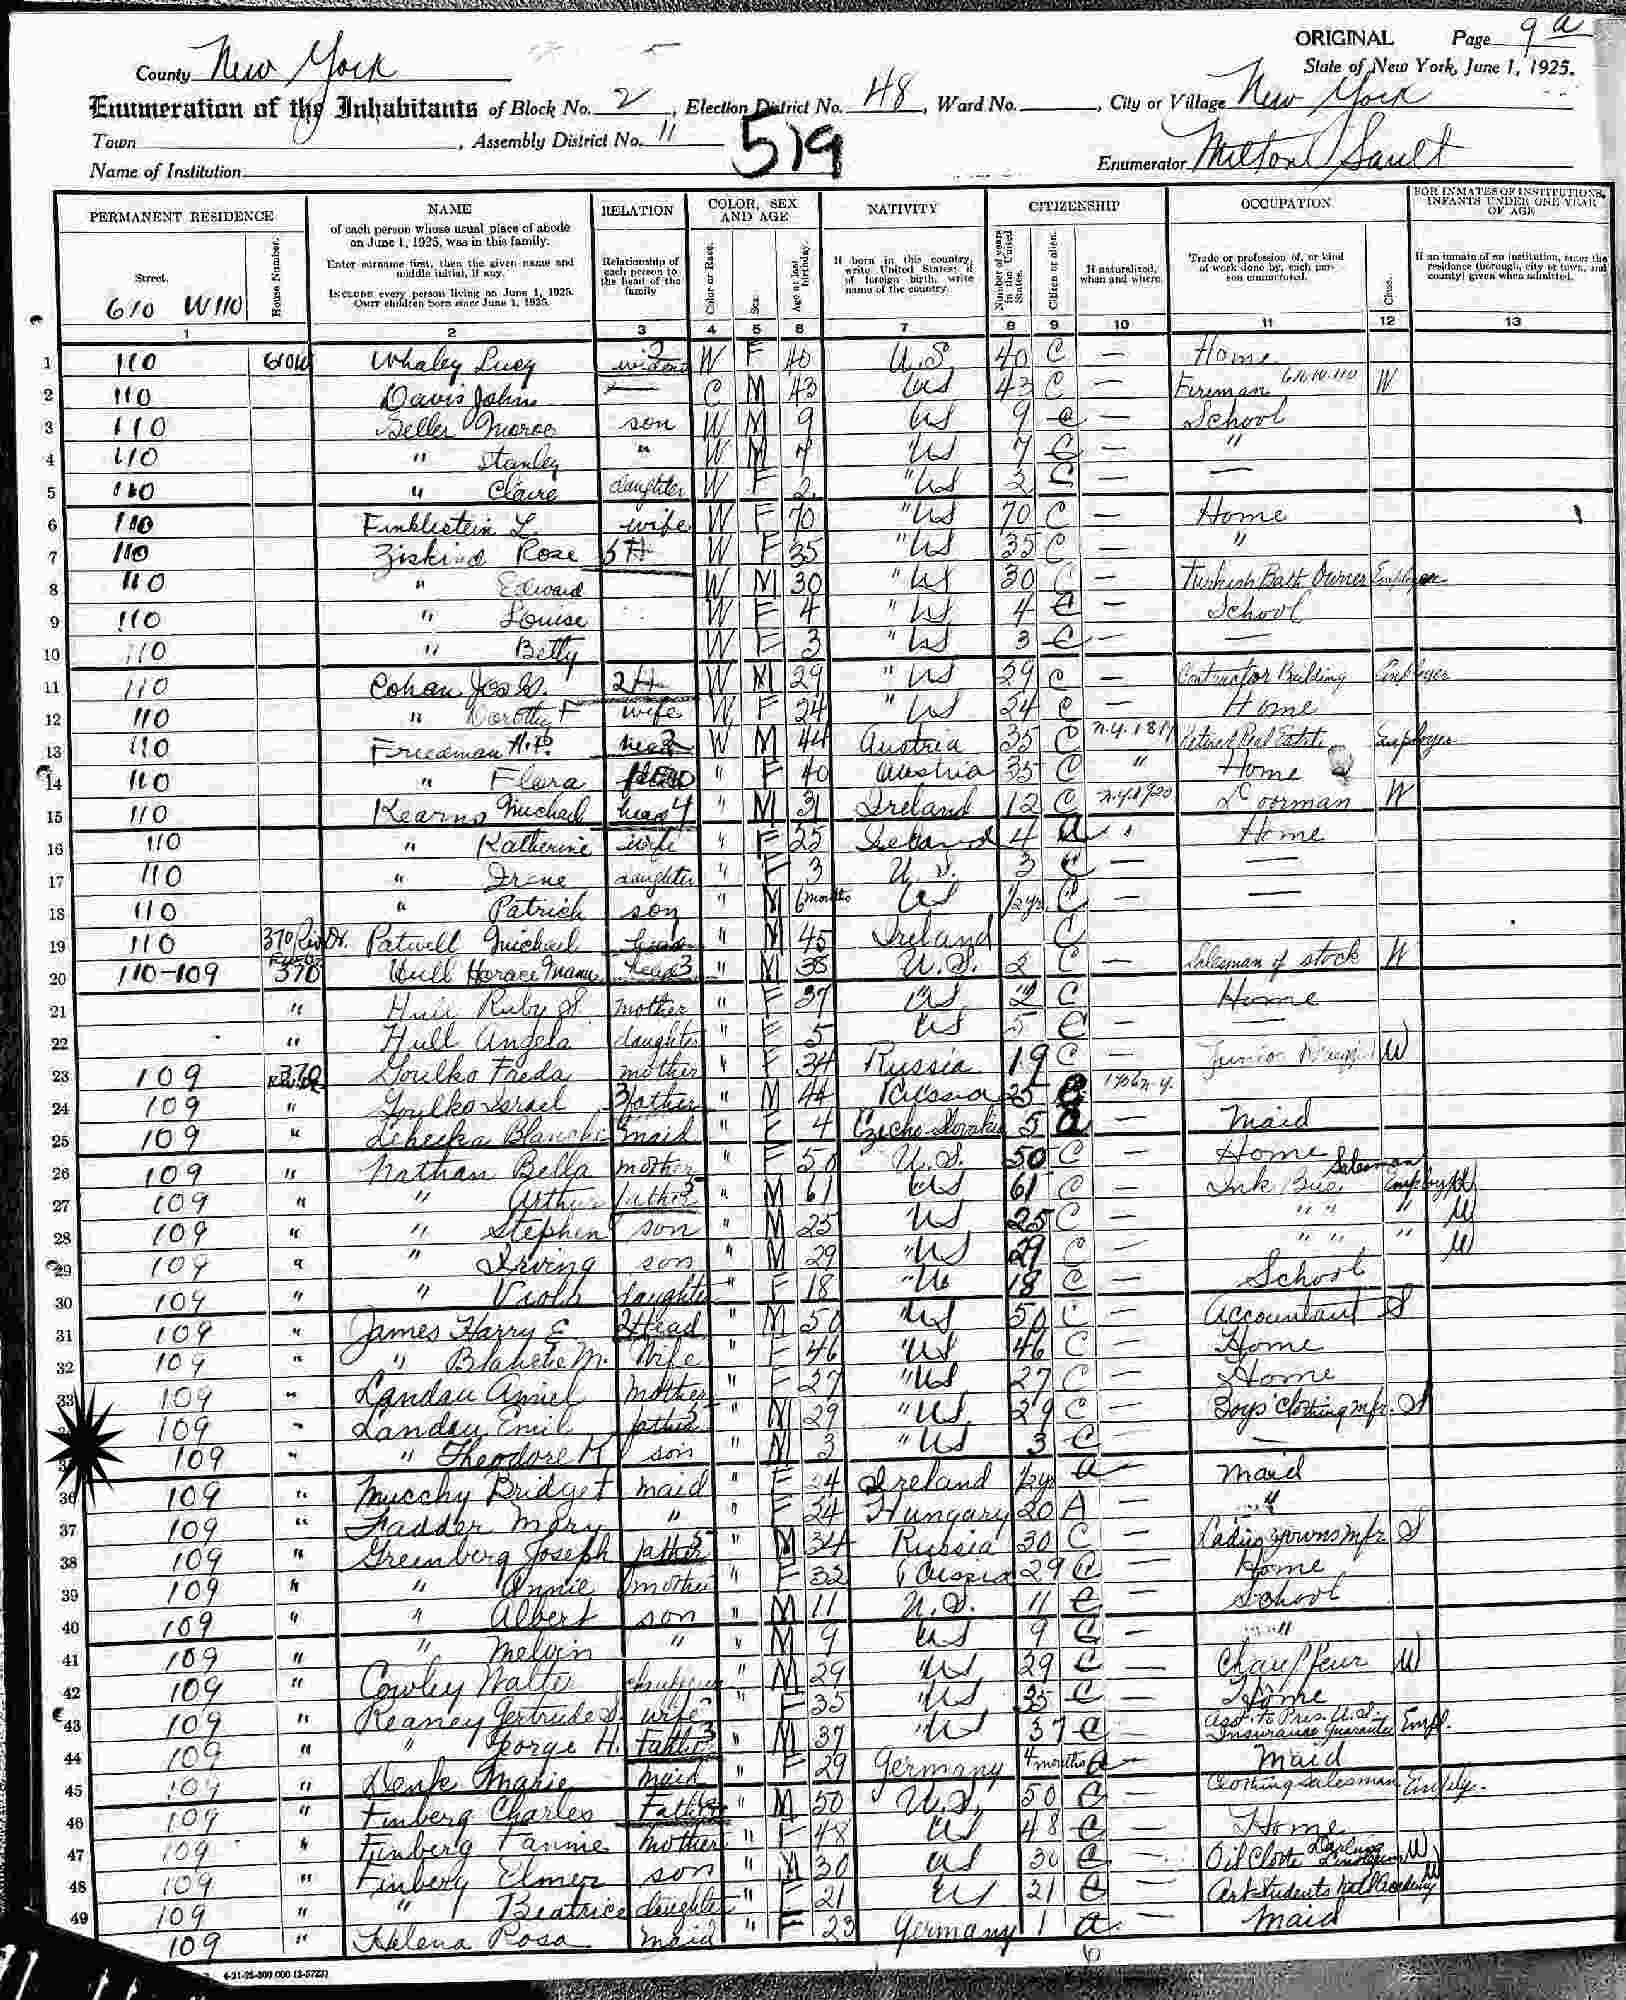 ORIGINAL Page 9 a
County New York State of New York, June 1, 1925.
Enumeration of the Inhabitants of Block No. 2, Election District No. 48, Ward No. , City or Village New York
Town , Assembly District No. 11 519 Enumerator Milton Sault
Name of Institution
PERMANENT RESIDENCE NAME RELATION COLOR, SEX AND AGE NATIVITY CITIZENSHIP OCCUPATION FOR INMATES OF INSTITUTIONS, INFANTS UNDER ONE YEAR OF AGE
Street. 610 W 110 House Number.
of each person whose usual place of abode on June 1, 1925, was in this family.
Enter surname first, then the given name and middle initial, if any.
INCLUDE every person living on June 1, 1925. OMIT children born since June 1, 1925.
Relationship of each person to the head of the family
Color or Race. Sex. Age at last birthday.
If born in this country, write United States; if of foreign birth, write name of the country.
Number of years in the United States. Citizen or alien. If naturalized, when and where.
Trade or profession of, or kind of work done by, each person enumerated. Class.
If an inmate of an institution, enter the residence (borough, city or town, and county) given when admitted.
1 2 3 4 5 6 7 8 9 10 11 12 13
1 110 610W Whaley Lucy widow W F 40 U.S. 40 C — Home
2 110 Davis John — C M 43 US 43 C — Fireman 610 W 110 W
3 110 Monroe son W M 9 US 9 C — School
4 110 " Stanley " W M 7 US 7 C — "
5 110 " Claire daughter W F 2 "US 2 C — —
6 110 Finklestein L. wife W F 70 "US 70 C — Home
7 110 Ziskind Rose 5H W F 35 "US 35 C — "
8 110 " Edward W M 30 "US 30 C — Turkish Bath Owner Employer
9 110 " Louise W F 4 "US 4 C — School
10 110 " Betty W F 3 "US 3 C — —
11 110 Cohan Jos 2H W M 29 "US 29 C — Contractor Building Employer
12 110 " Dorothy F wife W F 24 "US 24 C — Home
13 110 Friedman H.P. head W M 44 Austria 35 C Retired Real Estate Employer
14 110 " Flora " F 40 Austria 35 C " Home
15 110 Kearns Michael head 4 " M 31 Ireland 12 C N.Y. 1920 Doorman W
16 110 " Katherine wife " F 25 Ireland 4 a " Home
17 110 " Irene daughter " F 3 U.S. 3 C — —
18 110 " Patrick son " M 6 months US 1/2 yr C — —
19 110 370 Riv Dr. Patwell Michael head " M 45 Ireland C
20 110-109 370 Hull Horace Mann head 3 " M 35 U.S. 2 C — Salesman of stock W
21 " Hull Ruby S. mother " F 37 US 2 C — Home
22 " Hull Angela daughter " F 5 US 5 C — —
23 109 370 Goulko Freda mother " F 34 Russia 19 C — Junior W
24 109 " Goulko Israel 3 father " M 44 Russia 25 C 1906 N.Y.
25 109 " Blanche maid " F 4 Czecho-Slovakia 5 a Maid
26 109 " Nathan Bella mother " F 50 U.S. 50 C — Home
27 109 " " Arthur father 5 " M 61 US 61 C — Ink Bus. Salesman Employ W
28 109 " " Stephen son " M 25 US 25 C — " " " W
29 109 " " Irving son " M 29 "US 29 C — " " " W
30 109 " " Viola daughter " F 18 "US 18 C — School
31 109 " James Harry E 2 Head " M 50 "US 50 C — Accountant S
32 109 " " Blanche M. Wife " F 46 "US 46 C — Home
33 109 " Landau Amiel Mother " F 27 "US 27 C — Home
109 " Landau Emil father 3 " M 29 "US 29 C — Boys' Clothing mfr. S
109 " " Theodore H son " M 3 "US 3 C — —
36 109 " Mucchy Bridget maid " F 24 Ireland 1/2 yr a — Maid
37 109 " Fadder Mary " " F 24 Hungary 20 A — "
38 109 " Greenberg Joseph father 5 " M 34 Russia 30 C — Ladies gowns mfr S
39 109 " " Annie mother " F 32 Russia 29 C — Home
40 109 " " Albert son " M 11 U.S. 11 C — School
41 109 " " Melvin " " M 9 US 9 C — "
42 109 " Cowley Walter chauffeur " M 29 "US 29 C — Chauffeur W
43 109 " Reaney Gertrude S. wife " F 35 "US 35 C — Home
44 109 " " George H. Father 3 " M 37 "US 37 C — Asst. to Pres. U.S. Insurance Guarantee Empl.
45 109 " Denk Marie Maid " F 29 Germany 4 months a — Maid
46 109 " Finberg Charles Father " M 50 U.S. 50 C — Clothing salesman Emply.
47 109 " Finberg Fannie Mother " F 48 US 48 C — Home
48 109 " Finberg Elmer son " M 30 US 30 C — Oil Cloth Linoleum W
49 109 " " Beatrice daughter " F 21 US 21 C — Art Students Natl Academy W
109 " Helena Rosa Maid " F 23 Germany 1 a — Maid
4-21-25-300 000 (3-5723)